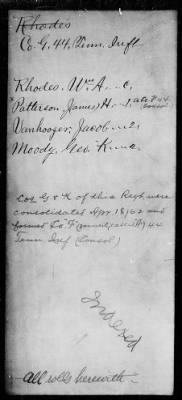 Rhodes
Co. G. 44, Tenn. Inft.
Rhodes. Wm. A.
Patterson, James H.
Vanhoozer, Jacob
Moody, Geo. K.
Cos G & K of this Regt. were
consolidated Apr. 18, 62 and
formed Co. F 44
Tenn Inf (Consol)
Indexed
All rolls herewith